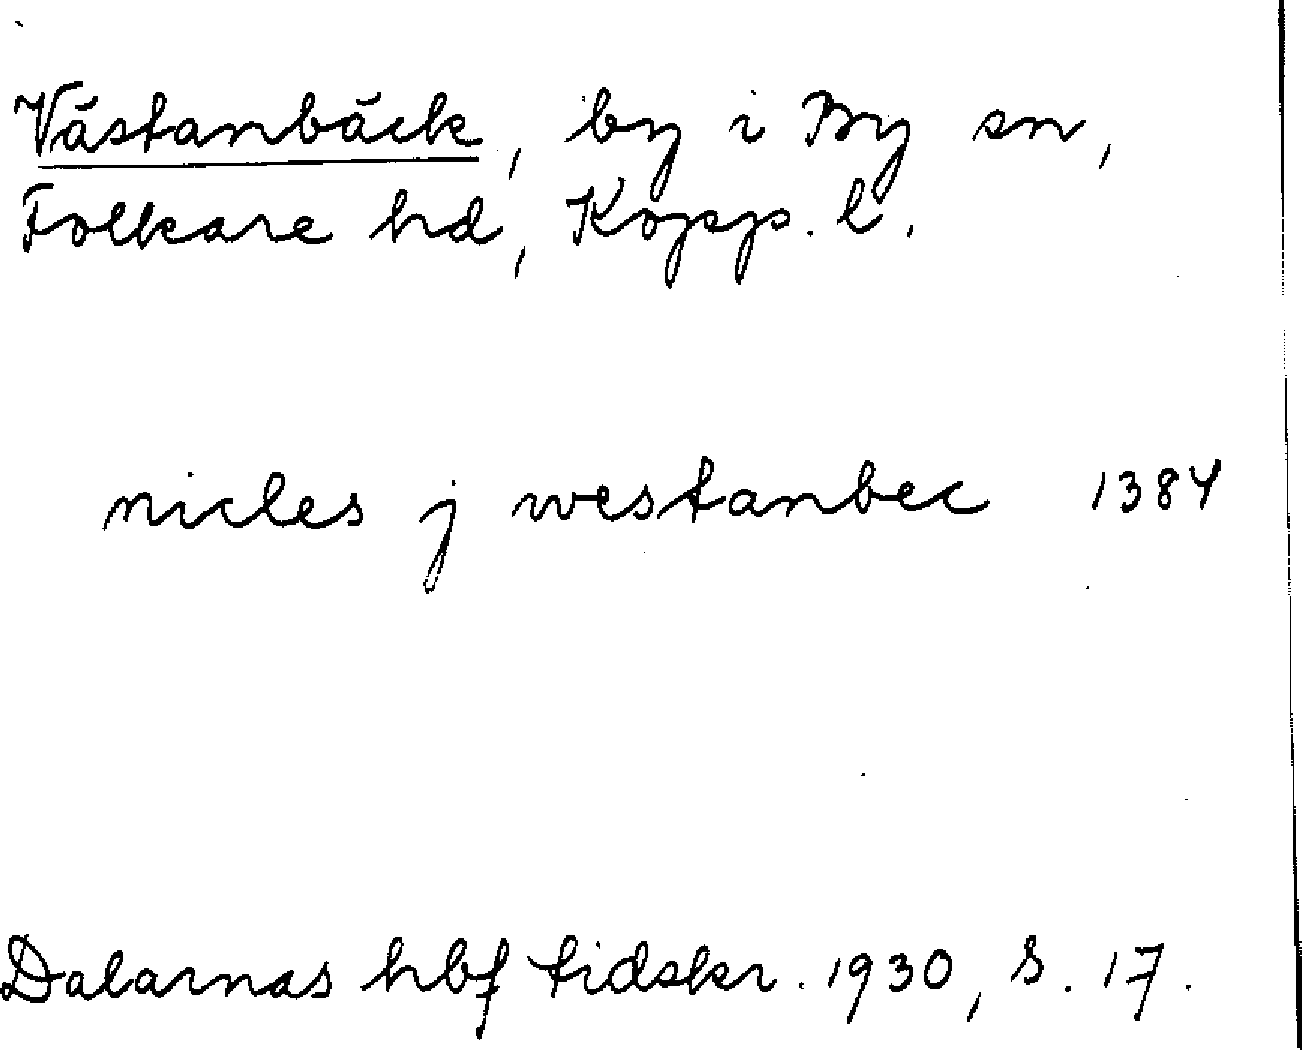 Västanbäck, by i By sn,
Folkare hd, Kopp. l.
nicles j westanbec 1384
Dalarnas hbf tidskr. 1930, s. 17.